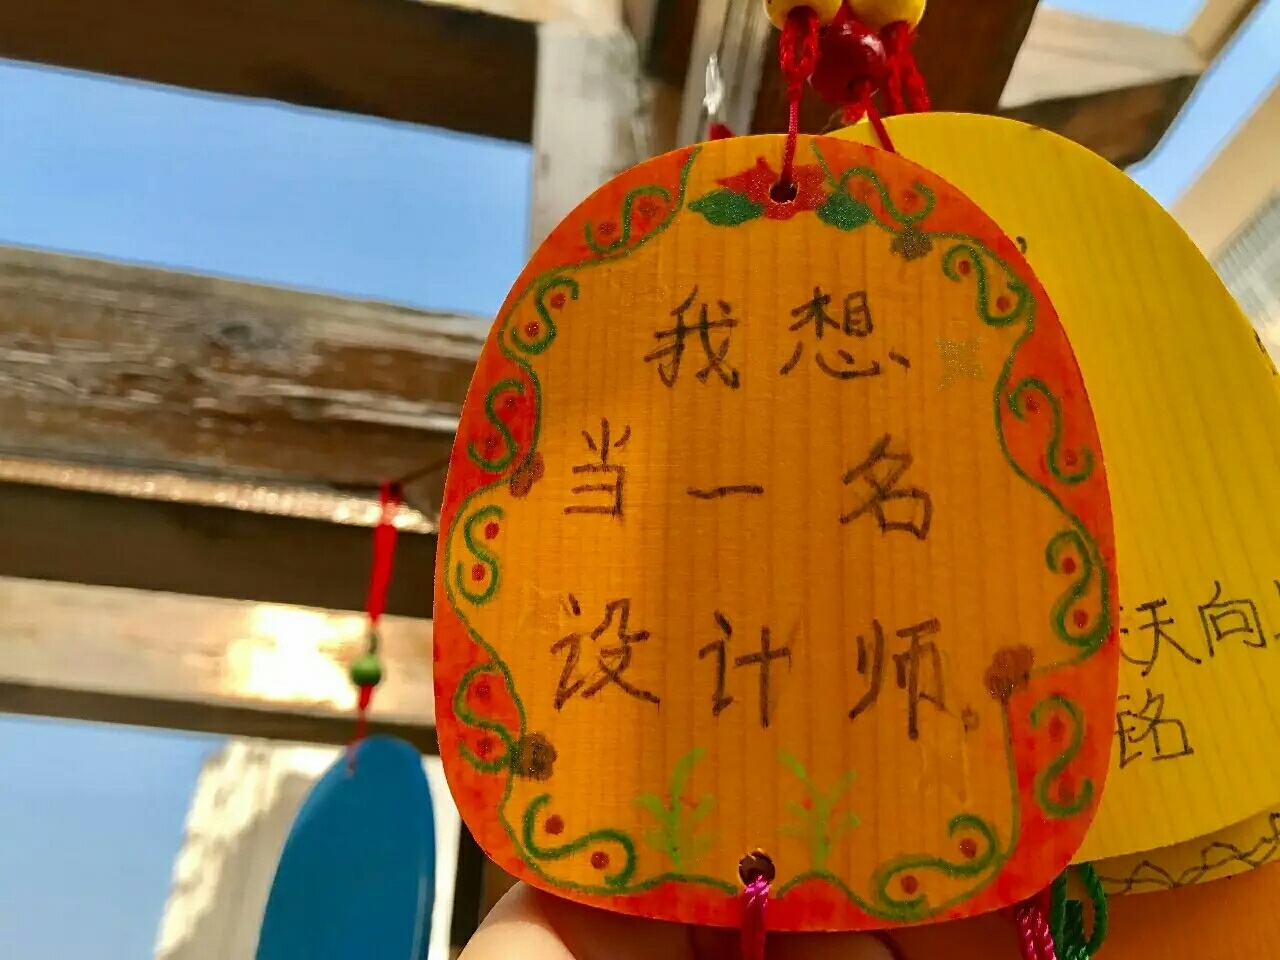 我想
当一名
设计师。
天向
铭